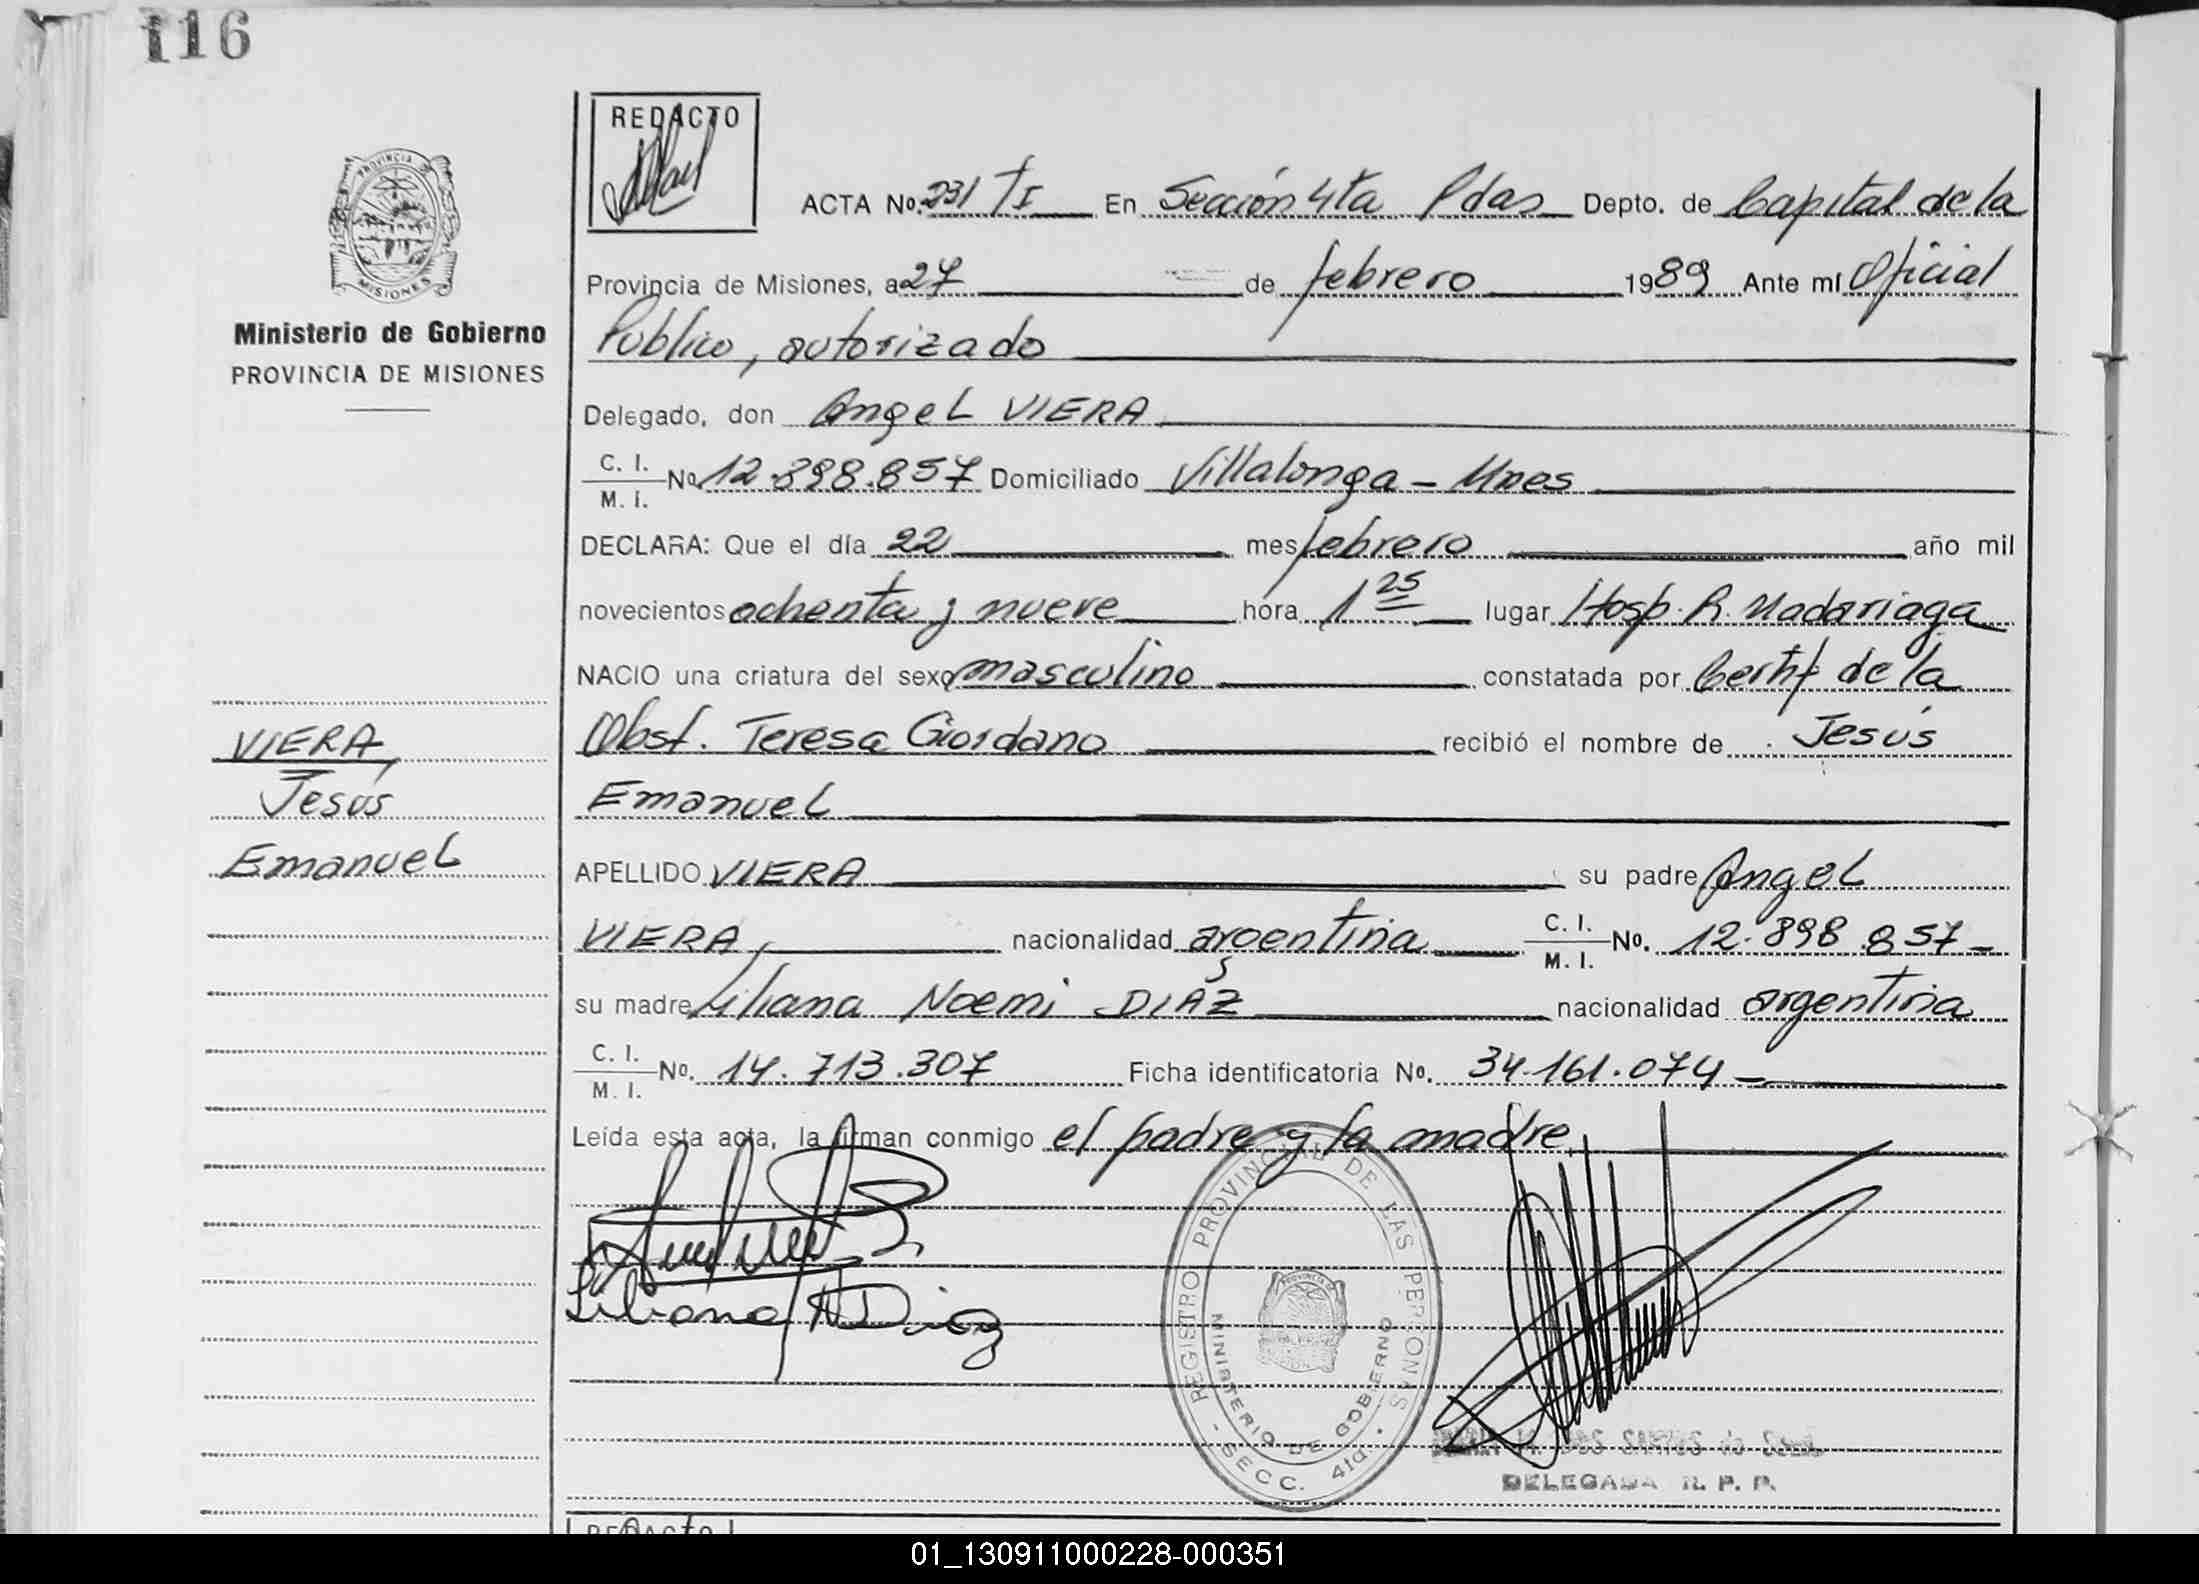 116
REDACTO
ACTA No. 231 TI En Sección 4ta Pdas Depto. de Capital de la
PROVINCIA
MISIONES
Provincia de Misiones, a 27 de febrero 1989 Ante mí Oficial
Ministerio de Gobierno
PROVINCIA DE MISIONES
Público, autorizado
Delegado, don Angel VIERA
C. I.
M. I. No. 12.898.857 Domiciliado Villalonga - Mnes
DECLARA: Que el día 22 mes febrero año mil
novecientos ochenta y nueve hora 1 25 lugar Hosp. R. Madariaga
NACIO una criatura del sexo masculino constatada por Certif de la
VIERA,
Jesús
Emanuel
Obst. Teresa Giordano recibió el nombre de Jesús
Emanuel
APELLIDO VIERA su padre Angel
VIERA, nacionalidad argentina C. I.
M. I. No. 12.898.857-
su madre Liliana Noemi DIAZ nacionalidad argentina
C. I.
M. I. No. 14.713.307 Ficha identificatoria No. 34.161.074-
Leída esta acta, la firman conmigo el padre y la madre.
Liliana N Diaz
REGISTRO PROVINCIAL DE LAS PERSONAS
MINISTERIO DE GOBIERNO
- SECC. 4ta. -
PROVINCIA
DELEGADA R. P. P.
REDACTO
01_130911000228-000351